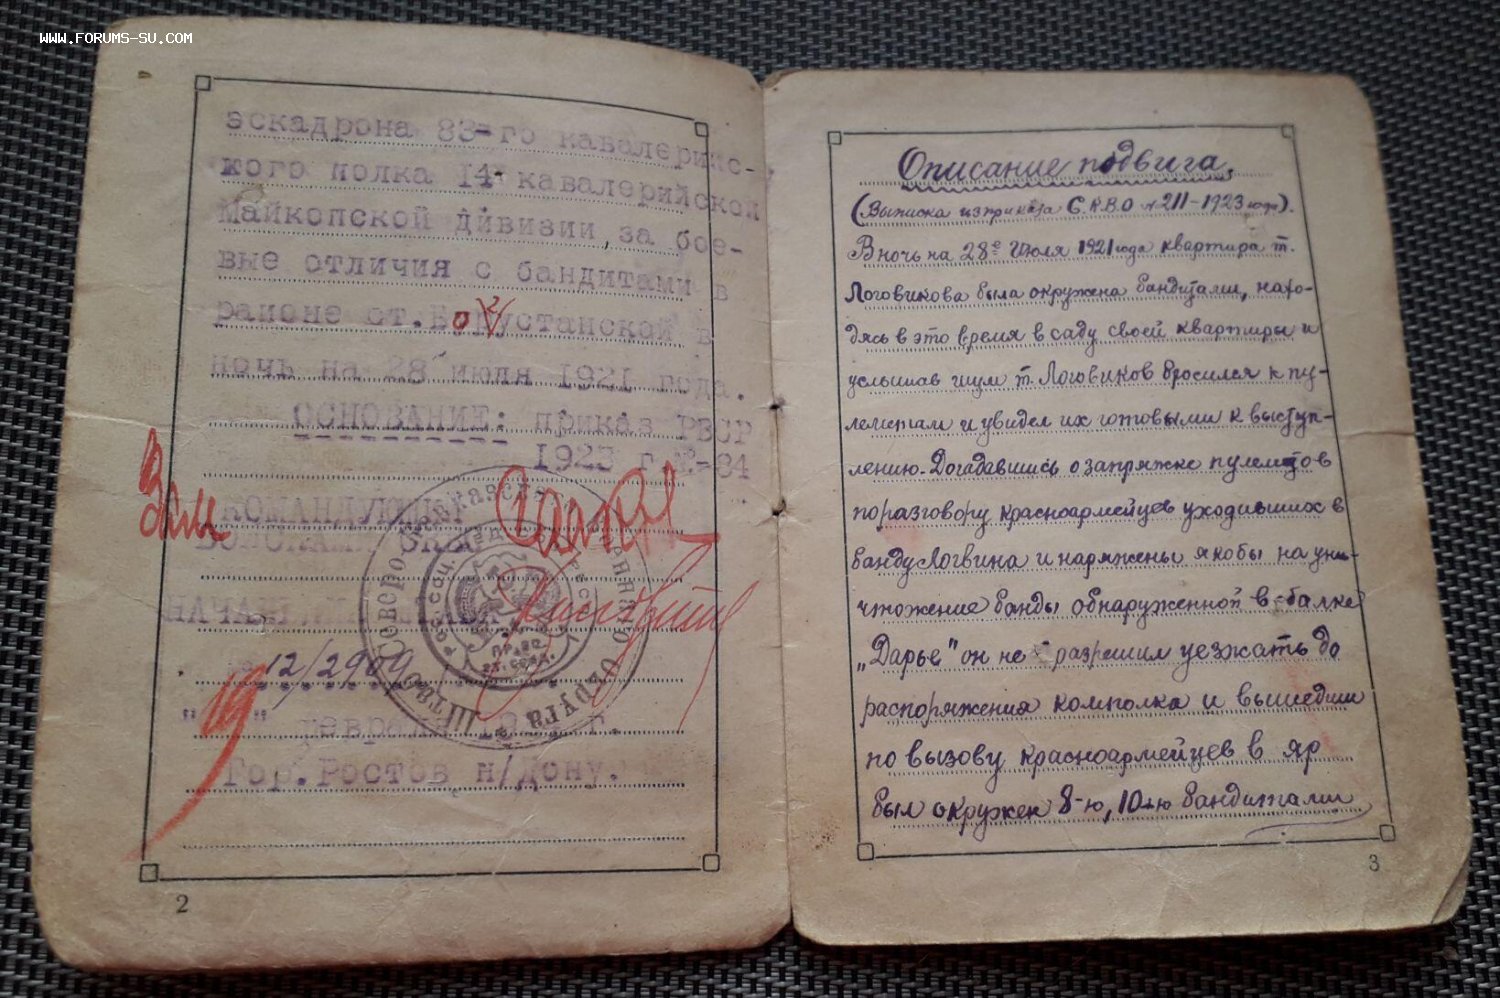 WWW.FORUMS-SU.COM
эскадрона 83-го кавалерийс-
кого полка 14 кавалерийской
Майкопской дивизии, за бое-
вые отличия с бандитами в
районе ст. Бо густанской в
ночь на 28 июля 1921 года.
ОСНОВАНИЕ: приказ РВСР
1923 г. №-84
Зам КОМАНДУЮЩИЙ
ВОЙСКАМИ СКВО
НАЧАЛЬНИК ШТАБА
Штаб Северо Кавказского Военного Округа
12/2909
"19" февраля г.
Гор. Ростов н/Дону.
2
Описание подвига
(Выписка из приказа С.К.В.О № 211-1923 года).
В ночь на 28е Июля 1921 года квартира т.
Логовикова была окружена бандитами, нахо-
дясь в это время в саду своей квартиры и
услышав шум т. Логовиков бросился к пу-
леметам и увидел их готовыми к выступ-
лению. Догадавшись о запряжке пулеметов
по разговору красноармейцев уходивших в
банду Логвина и наряжены якобы на уни-
чтожение банды обнаруженной в балке
„Дарье" он не разрешил уезжать до
распоряжения комполка и вышедши
по вызову красноармейцев в яр
был окружен 8-ю, 10-ю бандитами
3